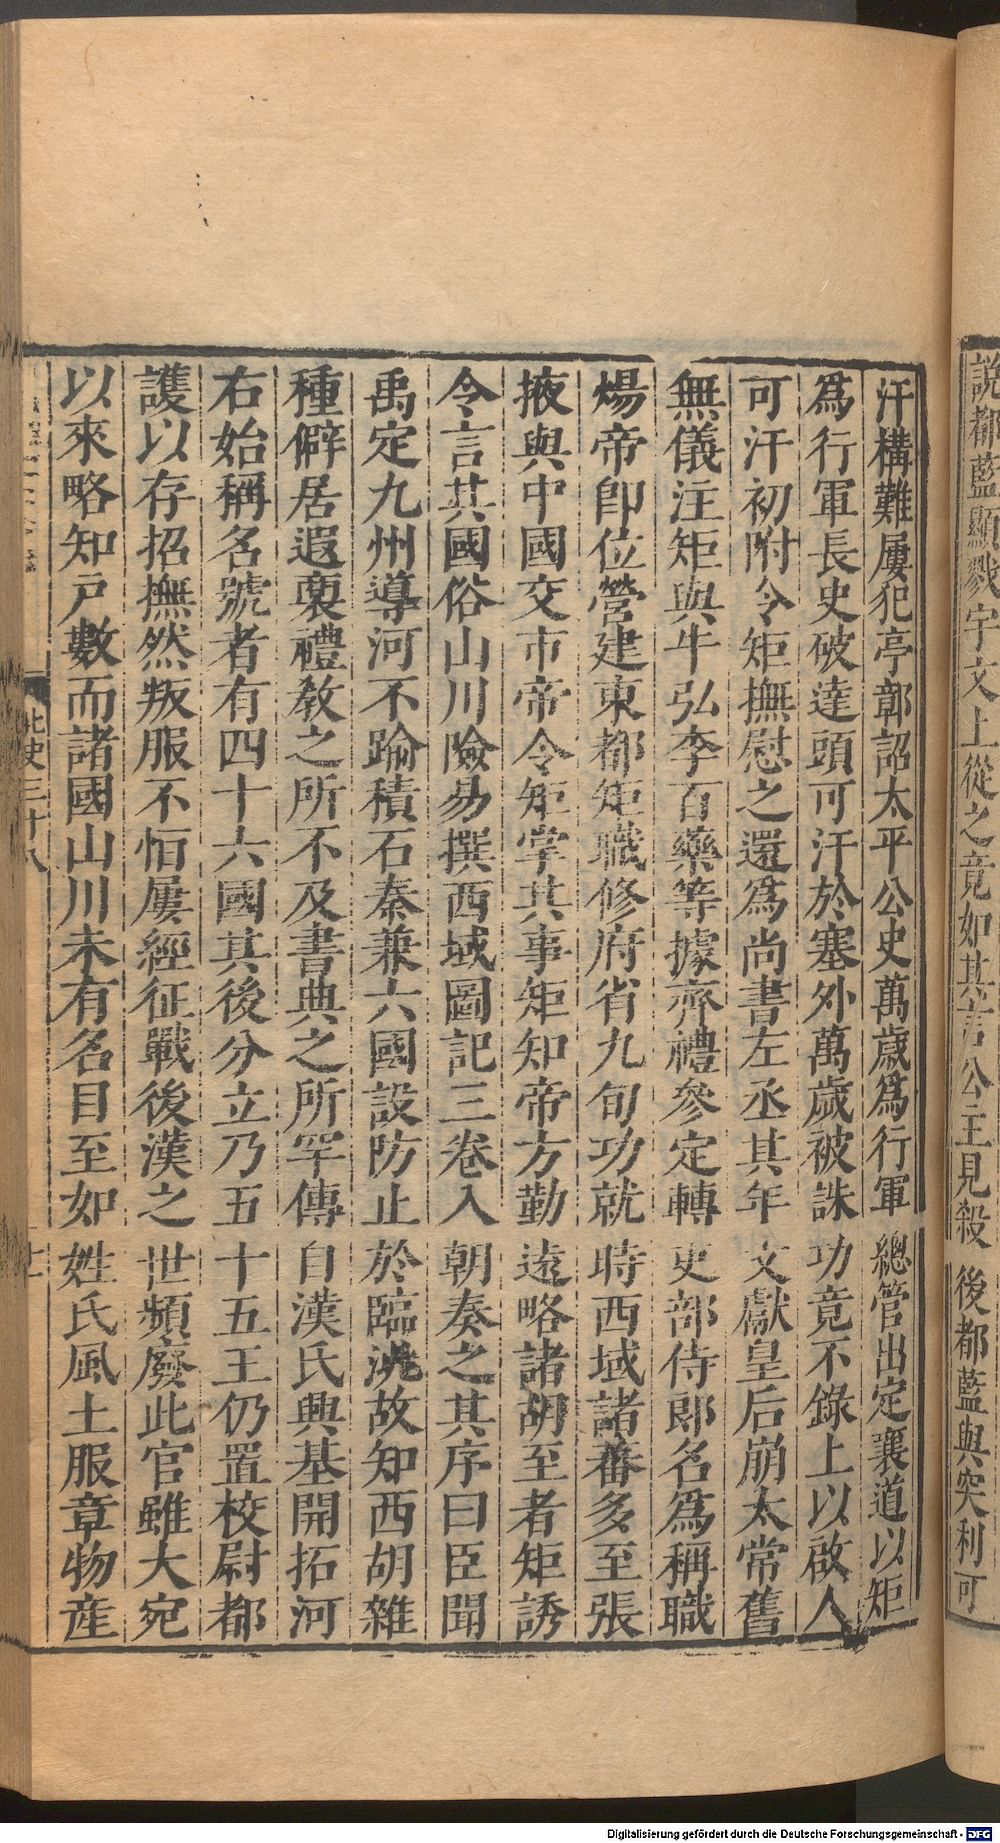 説都藍顯戮宇文上從之竟如其言公主見殺後都藍與突利可
汗構難屢犯亭鄣詔太平公史萬歲爲行軍總管出定襄道以矩
爲行軍長史破達頭可汗於塞外萬歲被誅功竟不錄上以啟人
可汗初附令矩撫慰之還爲尚書左丞其年文獻皇后崩太常舊
無儀注矩與牛弘李百藥等據齊禮參定轉吏部侍郎名爲稱職
煬帝卽位營建東都矩職修府省九旬功就時西域諸蕃多至張
掖與中國交市帝令矩掌其事矩知帝方勤遠略諸胡至者矩誘
令言其國俗山川險易撰西域圖記三卷入朝奏之其序曰臣聞
禹定九州導河不踰積石秦兼六國設防止於臨洮故知西胡雜
種僻居遐裔禮敎之所不及書典之所罕傳自漢氏興基開拓河
右始稱名號者有四十六國其後分立乃五十五王仍置校尉都
護以存招撫然叛服不恒屢經征戰後漢之世頻廢此官雖大宛
以來略知戸數而諸國山川未有名目至如姓氏風土服章物産
北史三十八
Digitalisierung gefördert durch die Deutsche Forschungsgemeinschaft - DFG